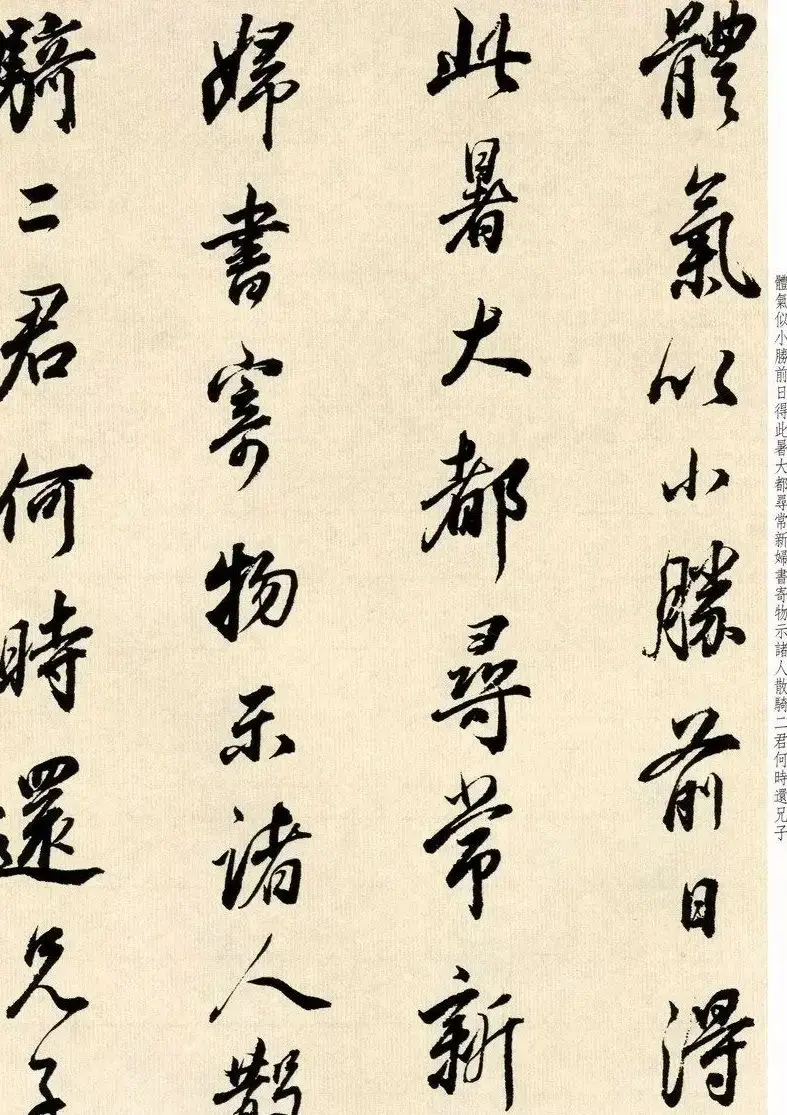 體氣似小勝前日得
此暑大都尋常新
婦書寄物示諸人散
騎二君何時還兄子
體氣似小勝前日得此暑大都尋常新婦書寄物示諸人散騎二君何時還兄子